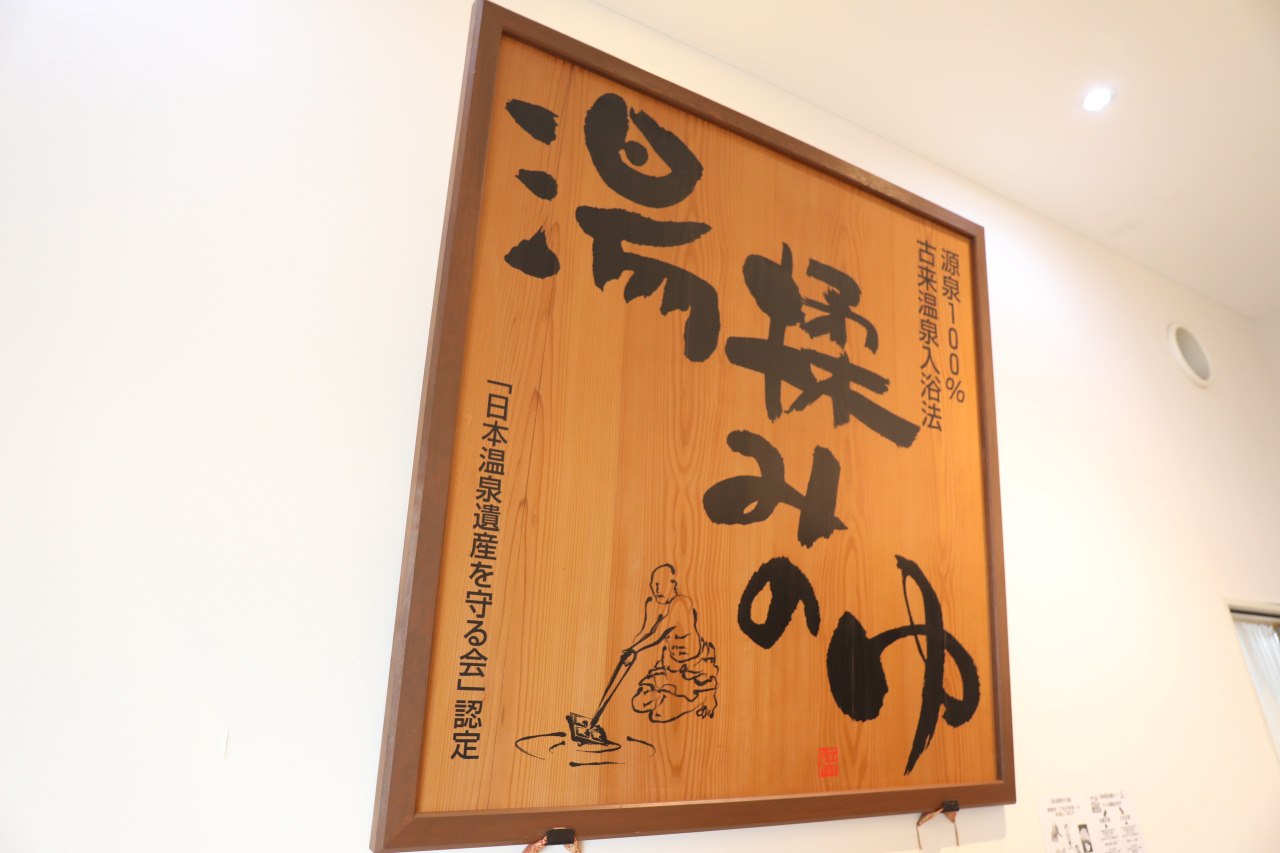 源泉100%
古来温泉入浴法
湯揉みのゆ
「日本温泉遺産を守る会」認定